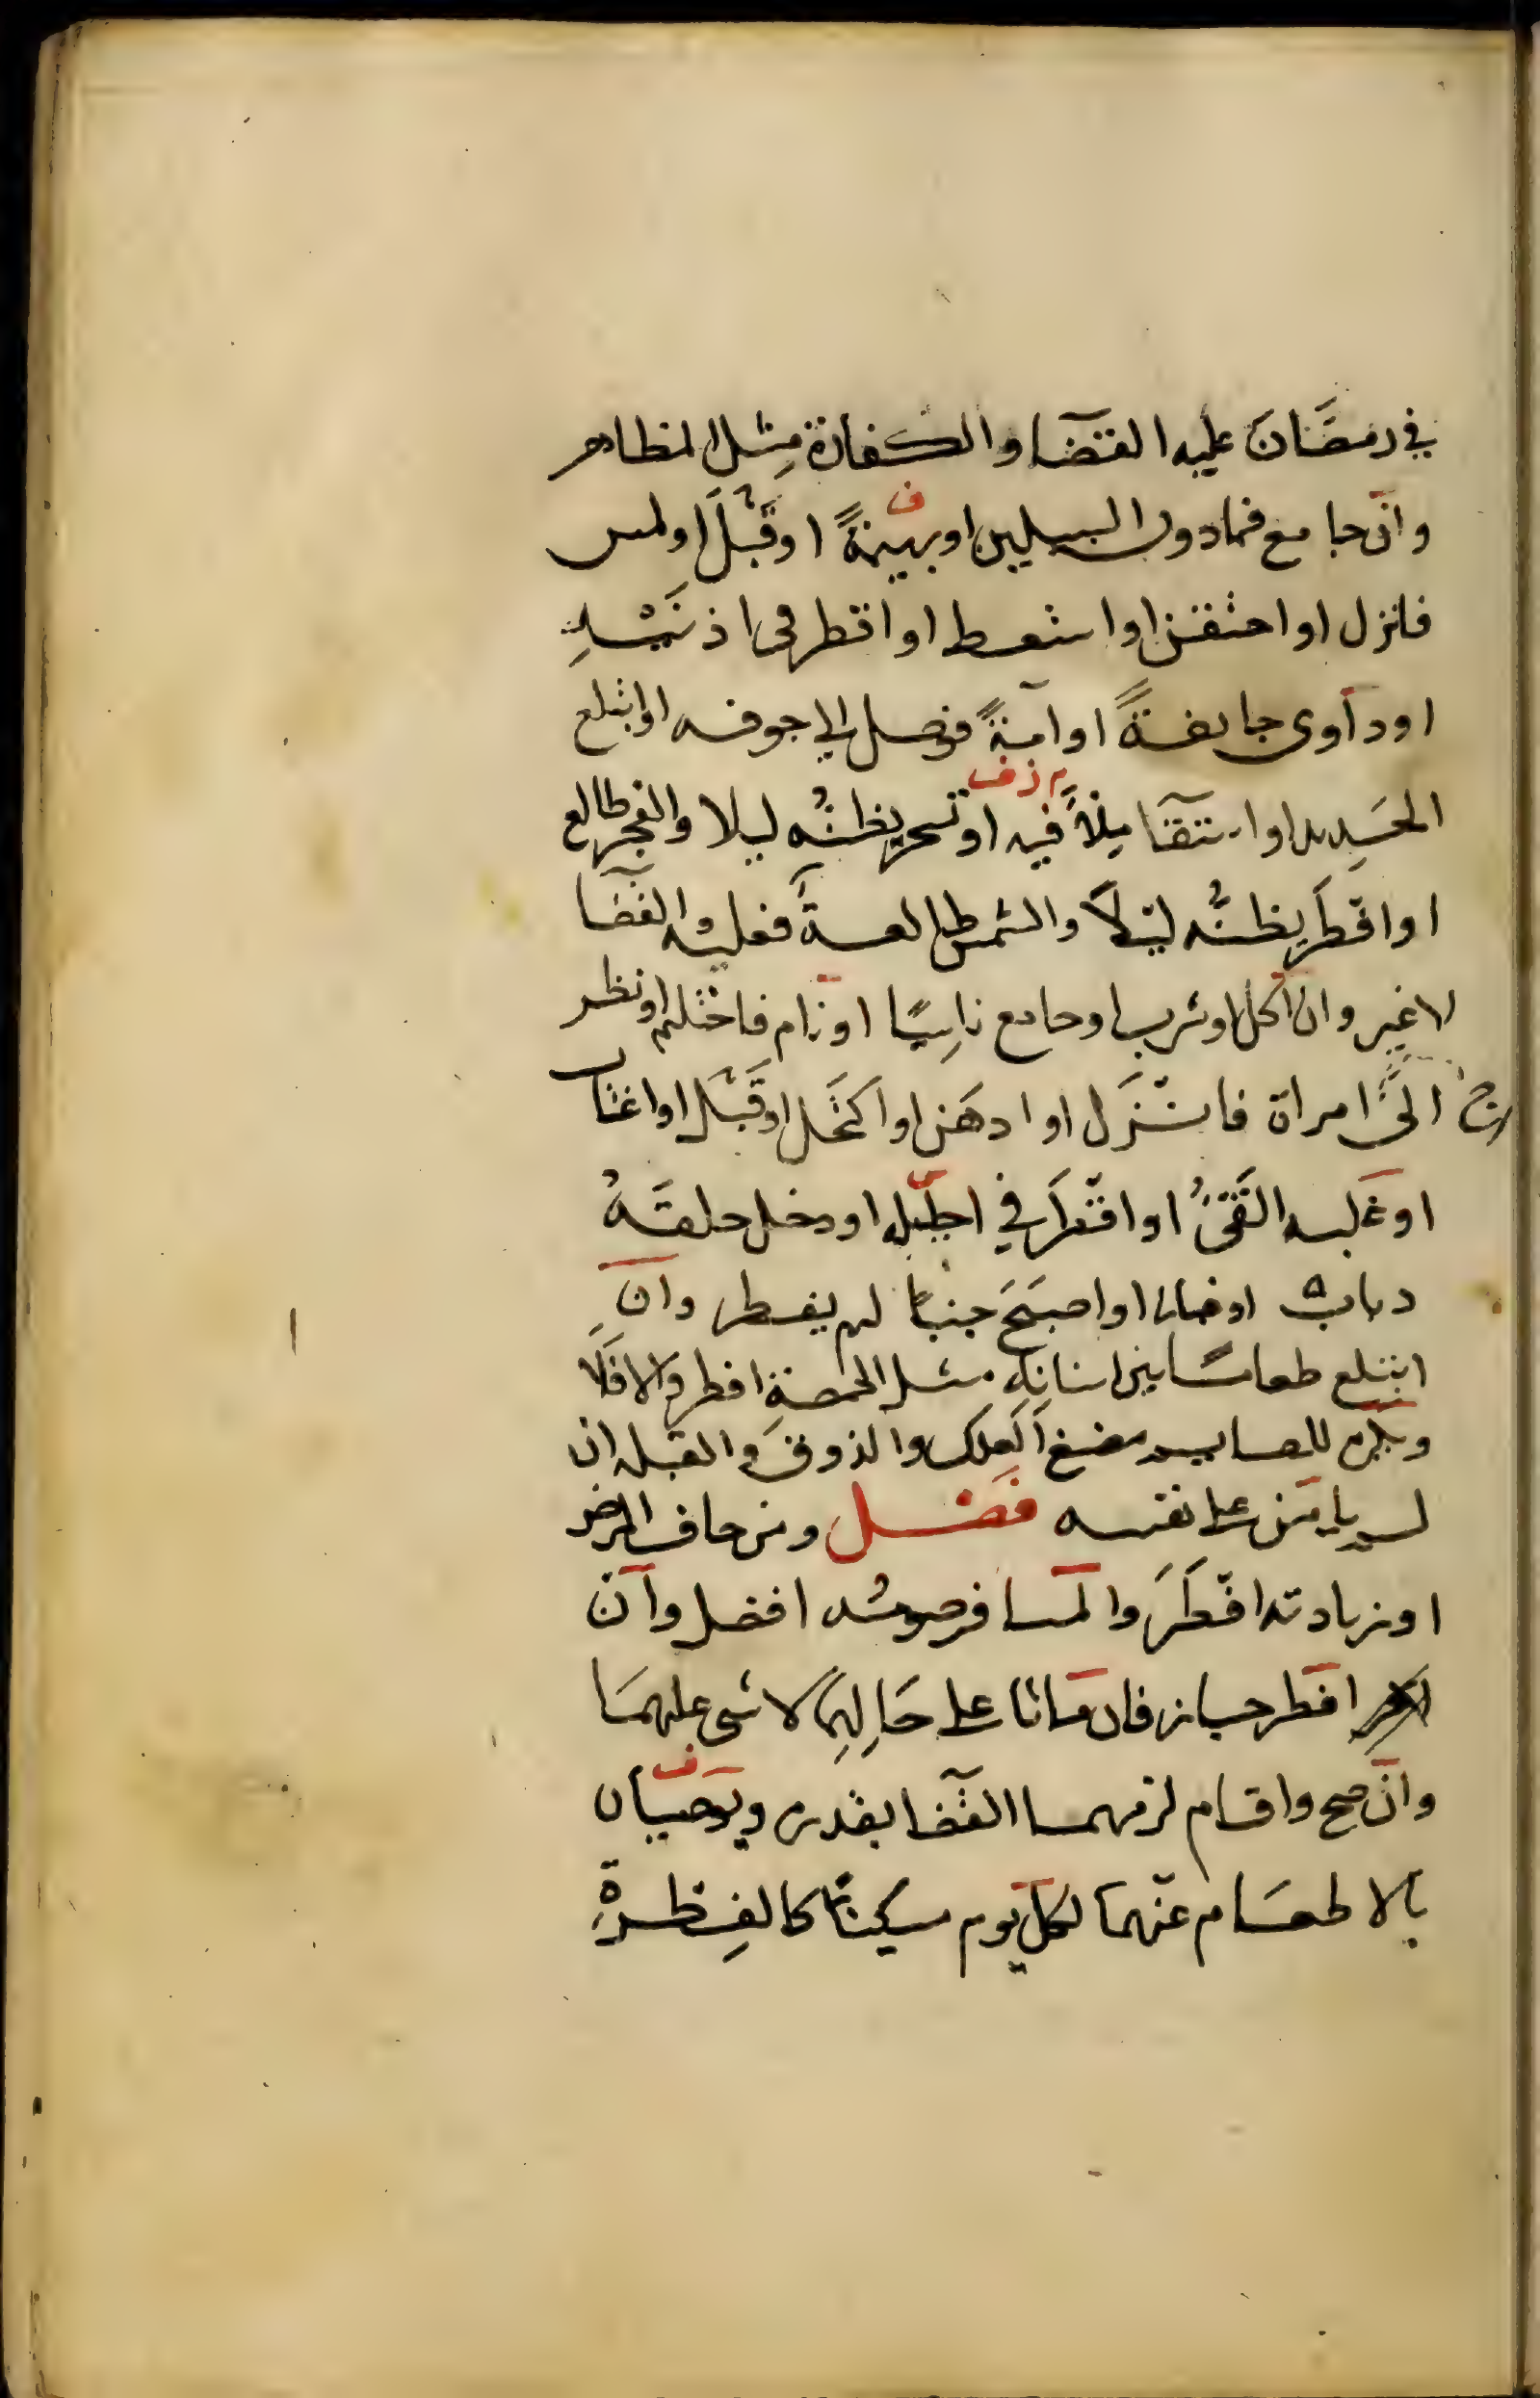 في رمضان عليه القضا والكفارة مثل المظاهر
وان جامع فيمادون السبيلين اوبهيمةً اوقبل اولمس
فانزل او احتقن او استعط او اقطر في اذنيه
او داوى جايفةً او آمةً فوصل الى جوفه او ابتلع
الحديد او استقا ملأ فيه او تسحر يظنه ليلا والفجر طالع
او افطر يظنه ليلاً والشمس طالعة فعليه القضا
لا غير وان اكل اوشرب اوجامع ناسيًا اونام فاحتلم اونظر
الى امراة فانزل او ادهن او اكتحل اوقبل او اغتاب
او غلبه القئ او اقطر في احليله او دخل حلقه
ذباب او غبار او اصبح جنباً لم يفطر وان
ابتلع طعامًا بين اسنانه مثل الحمصة افطر والا فلا
ويكره للصايم مضغ العلك والذوق والقبلة ان
لم يامن على نفسه فصل ومن خاف المرض
او زيادته افطر والمسافر صومه افضل وان
افطر جاز فان ماتا على حالهما لا شى عليهما
وان صح واقام لزمهما القضا بقدره ويوصيان
بالاطعام عنهما لكل يوم مسكيناً كالفطرة